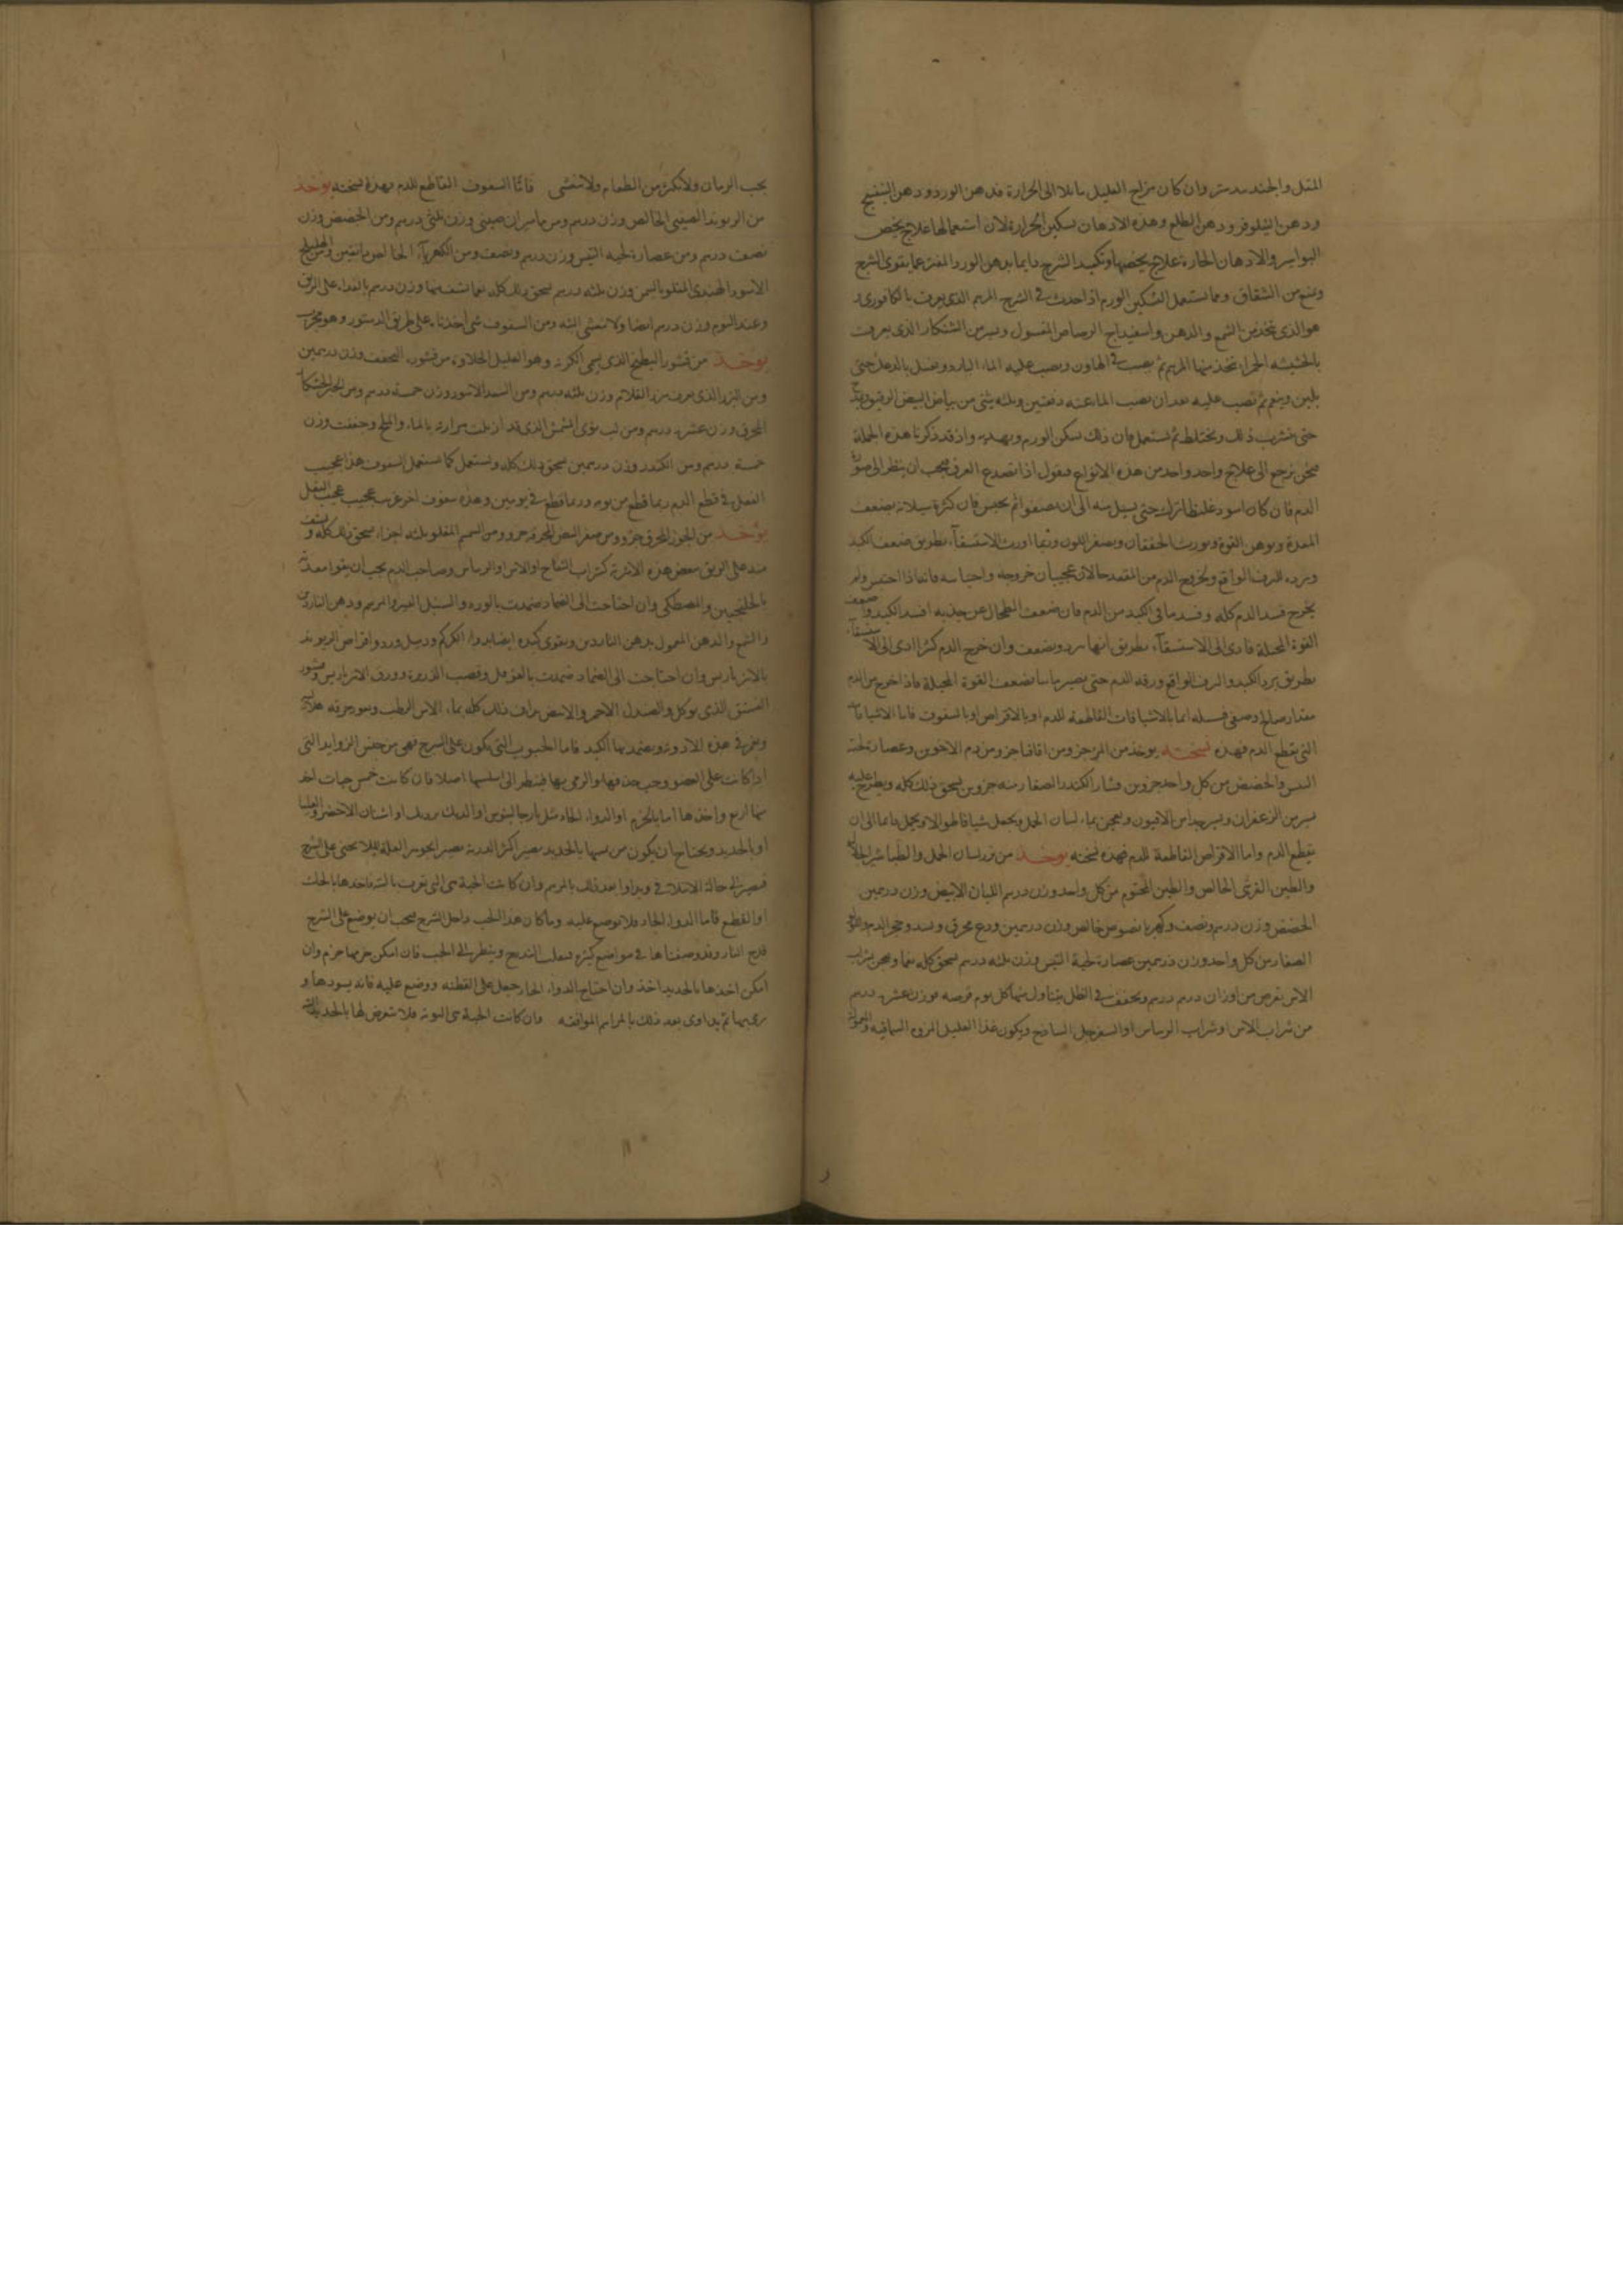 المقل والجندبيدستر وان كان مزاج العليل مايلا الى الحرارة فدهن الورد ودهن البنفسج
ودهن النيلوفر ودهن الطلع وهذه الادهان تسكين الحرارة لان استعمالها علاج يخص
البواسير والادهان الحارة علاج يخصها وتكميد الشرج دايما بدهن الورد المفتر مما يقوى الشرج
ويمنع من الشقاق ومما يستعمل لتسكين الورم اذا حدث في الشرج المرهم الذى يعرف بالكافورى
هو الذى يتخذ من الشمع والدهن واسفيداج الرصاص المغسول ويسير من الشنكار الذى يعرف
بالحشيشة الحمراء يتخذ منها المرهم ثم يصب في الهاون ويصب عليه الماء البارد ويغسل بالدهن حتى
يلين وينعم ثم تصب عليه بعد ان يصب الماء عنه دفعتين وثلثه شئ من بياض البيض الرقيق
حتى يتشرب ذلك ويختلط ثم يستعمل فان ذلك يسكن الورم ويهديه واذ قد ذكرنا هذه الجملة
فنحن نرجع الى علاج واحد واحد من هذه الانواع فنقول اذا تصدع العرق فيجب ان ينظر الى
الدم فان كان اسود غليظا ترك حتى يسيل منه الى ان يصفوا ثم يحبس فان كثرة سيلانه يضعف
المعدة ويوهن القوة ويورث الخفقان ويصفر اللون وربما اورث الاستسقآء بطريق ضعف الكبد
وبرده للنزف الواقع ولخروج الدم من المقعد حالان عجيبان خروجه واحتباسه فانه اذا احتبس ولم
يخرج فسد الدم كله وفسد ما في الكبد من الدم فان ضعف الطحال عن جذبه افسد الكبد
القوة المحيلة فادى الى الاستسقآء بطريق انها تبرد وتضعف وان خرج الدم كثيرا ادى الى
بطريق برد الكبد والنزف الواقع ورقه الدم حتى يصير مايا لضعف القوة المحيلة فاذا خرج من الدم
مقدار صالح وصفى فسبيله اما بالاشيافات القاطعة للدم او بالاقراص او بالسفوف فاما الاشيافات
التى تقطع الدم فهذه نسخته يوخذ من المر جزو ومن اقاقيا جزو ومن دم الاخوين وعصارة لحية
التيس والحضض من كل واحد جزوين قشار الكندر الصغار منه جزوين يسحق ذلك كله ويطرح عليه
يسير من الزعفران ويسير جدا من الافيون ويعجن بماء لسان الحمل ويجعل شيافا طوالا ويحمل دايما الى ان
ينقطع الدم واما الاقراص القاطعة للدم فهذه نسخته يوخذ من بزر لسان الحمل والطباشير
والطين القبرسى الخالص والطين المختوم من كل واحد وزن درهم اللبان الابيض وزن درهمين
الحضض وزن درهم ونصف وكهربا خالص وزن درهمين ودع محرق وبسد وحجر الدم
الصغار من كل واحد وزن درهمين عصارة لحية التيس وزن ثلثه درهم يسحق كله نعما ويعجن بشراب
الاس يقرص من اوزان درهم درهم ويجفف في الظل يتناول منها كل يوم قرصه بوزن عشره درهم
من شراب الاس او شراب الريباس او السفرجل الساذج ويكون غذا العليل المزوره السماقيه
بحب الرمان ولا تكثر من الطعام ولا يتعشى فامّا السفوف القاطع للدم فهذه نسخته يوخذ
من الريوند الصينى الخالص وزن درهم ومن ماميران صينى وزن ثلثى درهم ومن الحضض وزن
نصف درهم ومن عصارة لحيه التيس وزن درهم ونصف ومن الكهرباء الخالص دانقين
الاسود الهندى المقلو بالسمن وزن ثلثه درهم يسحق ذلك كله نعما وزن درهم بالغداه على الريق
وعند النوم وزن درهم ايضا ولا يتعشى البته ومن السفوف شى اخذناه على طريق الدستور وهو مجرب
يوخذ من قشور البطيخ الذى يسمى الكرنه وهو القليل الحلاوه من قشوره المجفف وزن درهمين
ومن البزر الذى يعرف ببزر وزن ثلثه درهم ومن الاسود وزن خمسة درهم ومن
المحرق وزن عشره درهم ومن لب نوى المشمش الذى قد ازيلت مرارته بالماء والملح وجففت وزن
خمسة درهم ومن الكندر وزن درهمين يسحق ذلك كله ويستعمل كما يستعمل السفوف هذا عجيب
الفعل في قطع الدم ربما قطع من يومه وربما قطع في يومين وهذه سفوف اخر غريب عجيب الفعل
يوخذ من الجوز المحرق جزو ومن صفر البيض المحرقه جزو ومن السمسم المقلو ثلثه اجزاء يسحق ذلك كله
منه على الريق ببعض هذه الاشربة كشراب التفاح او الاس او الريباس وصاحب الدم يجب ان يقوا معدته
بالجلنجبين والمصطكى وان احتاجت الى الضماد ضمدت بالورد والسنبل والمريم ودهن الناردين
والشمع والدهن المعمول بدهن الناردين ويقوى كبده ايضا بدواء الكركم ودبيد ورد واقراص الريوند
بالانبرباريس وان احتاجت الى الضماد ضمدت بالفوفل وقصب الذريرة وورق الانبرباريس وقشور
الفستق الذى يوكل والصندل الاحمر والابيض يداف ذلك كله بماء الاس الرطب
ويغرق في هذه الادوية ويضمد بها الكبد فاما الحبوب التى يكون على الشرج فهى من جنس الزوايد التى
اذا كانت على العضو وجب حذفها والرمى بها فينظر الى اسلمها اصلا فان كانت خمس حبات اخذ
منها اربع واخذها اما بالخرم او الدواء الحاد مثل او الديك برديك او اشنان الاخضر
او بالحديد ويحتاج ان يكون من يمسها بالحديد بصير اكثر الدربة بصير بجوهر العلة ليلا يجنى على الشرج
فيصير في حالة الابتلاء ويداوا بعد ذلك بالمرهم وان كانت الحبة هى التى تعرف بالتينه اخذها بالحك
او القطع فاما الدواء الحاد فلا يوضع عليه وما كان هذا الحب داخل الشرج فيجب ان يوضع على الشرج
قدح النار وقد وصفناها في مواضع كثيره لينقلب الشرج وينظر الى الحب فان امكن خرمها خرم وان
امكن اخذها بالحديد اخذ وان احتاج الدواء الحاد جعل على القطنه ووضع عليه فانه يسودها و
يرمى بها ثم يداوى بعد ذلك بالمراهم الموافقه وان كانت الحبة هى التوته فلا تتعرض لها بالحديد